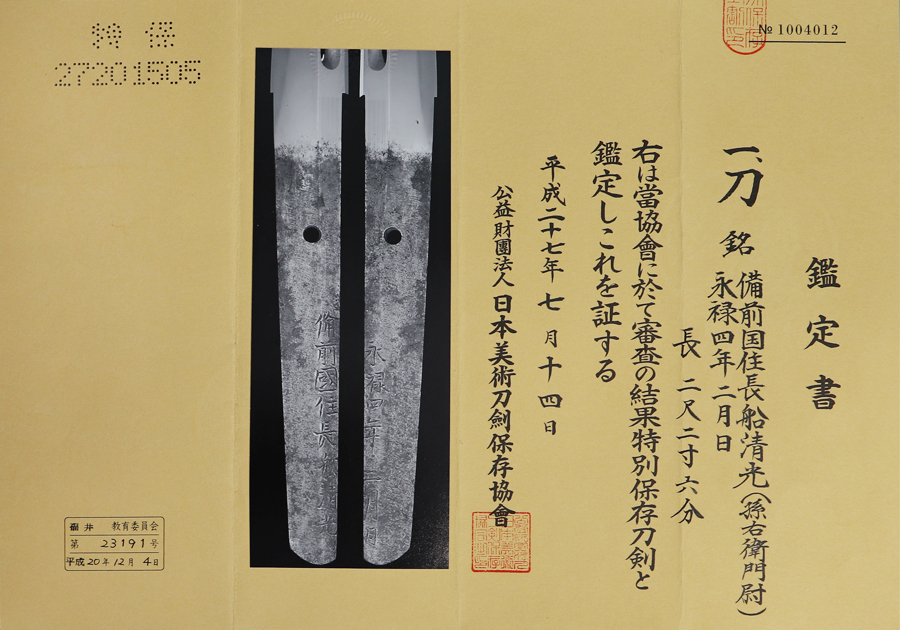 № 1004012
鑑定書
一、刀 銘 備前国住長船清光(孫右衛門尉)
永禄四年二月日
長 二尺二寸六分
右は當協會に於て審査の結果特別保存刀剣と
鑑定しこれを証する
平成二十七年七月十四日
公益財團法人日本美術刀劍保存協會
特保
27201505
備前國住長船清光
永禄四年二月日
教育委員会
第 23191 号
平成20年12月4日